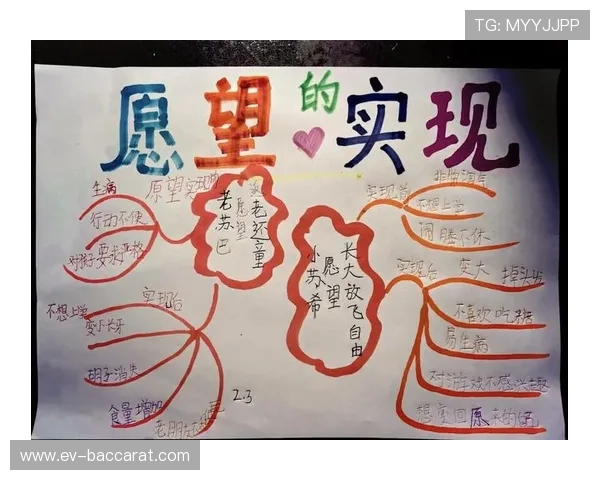 TG: MYYJJPP
愿望的实现
生病
愿望实现前
行动不便
对孙子要求严格
老苏巴
愿望
老还童
实现后
不想上学
变小长牙
胡子消失
食量增加
2.3
小苏希
愿望
长大放飞自由
实现前
非常淘气
不想上学
闹腾不休
实现后
变大
掉头发
不喜欢吃糖
易生病
对游戏不感兴趣
想变回原来的
www.ev-baccarat.com